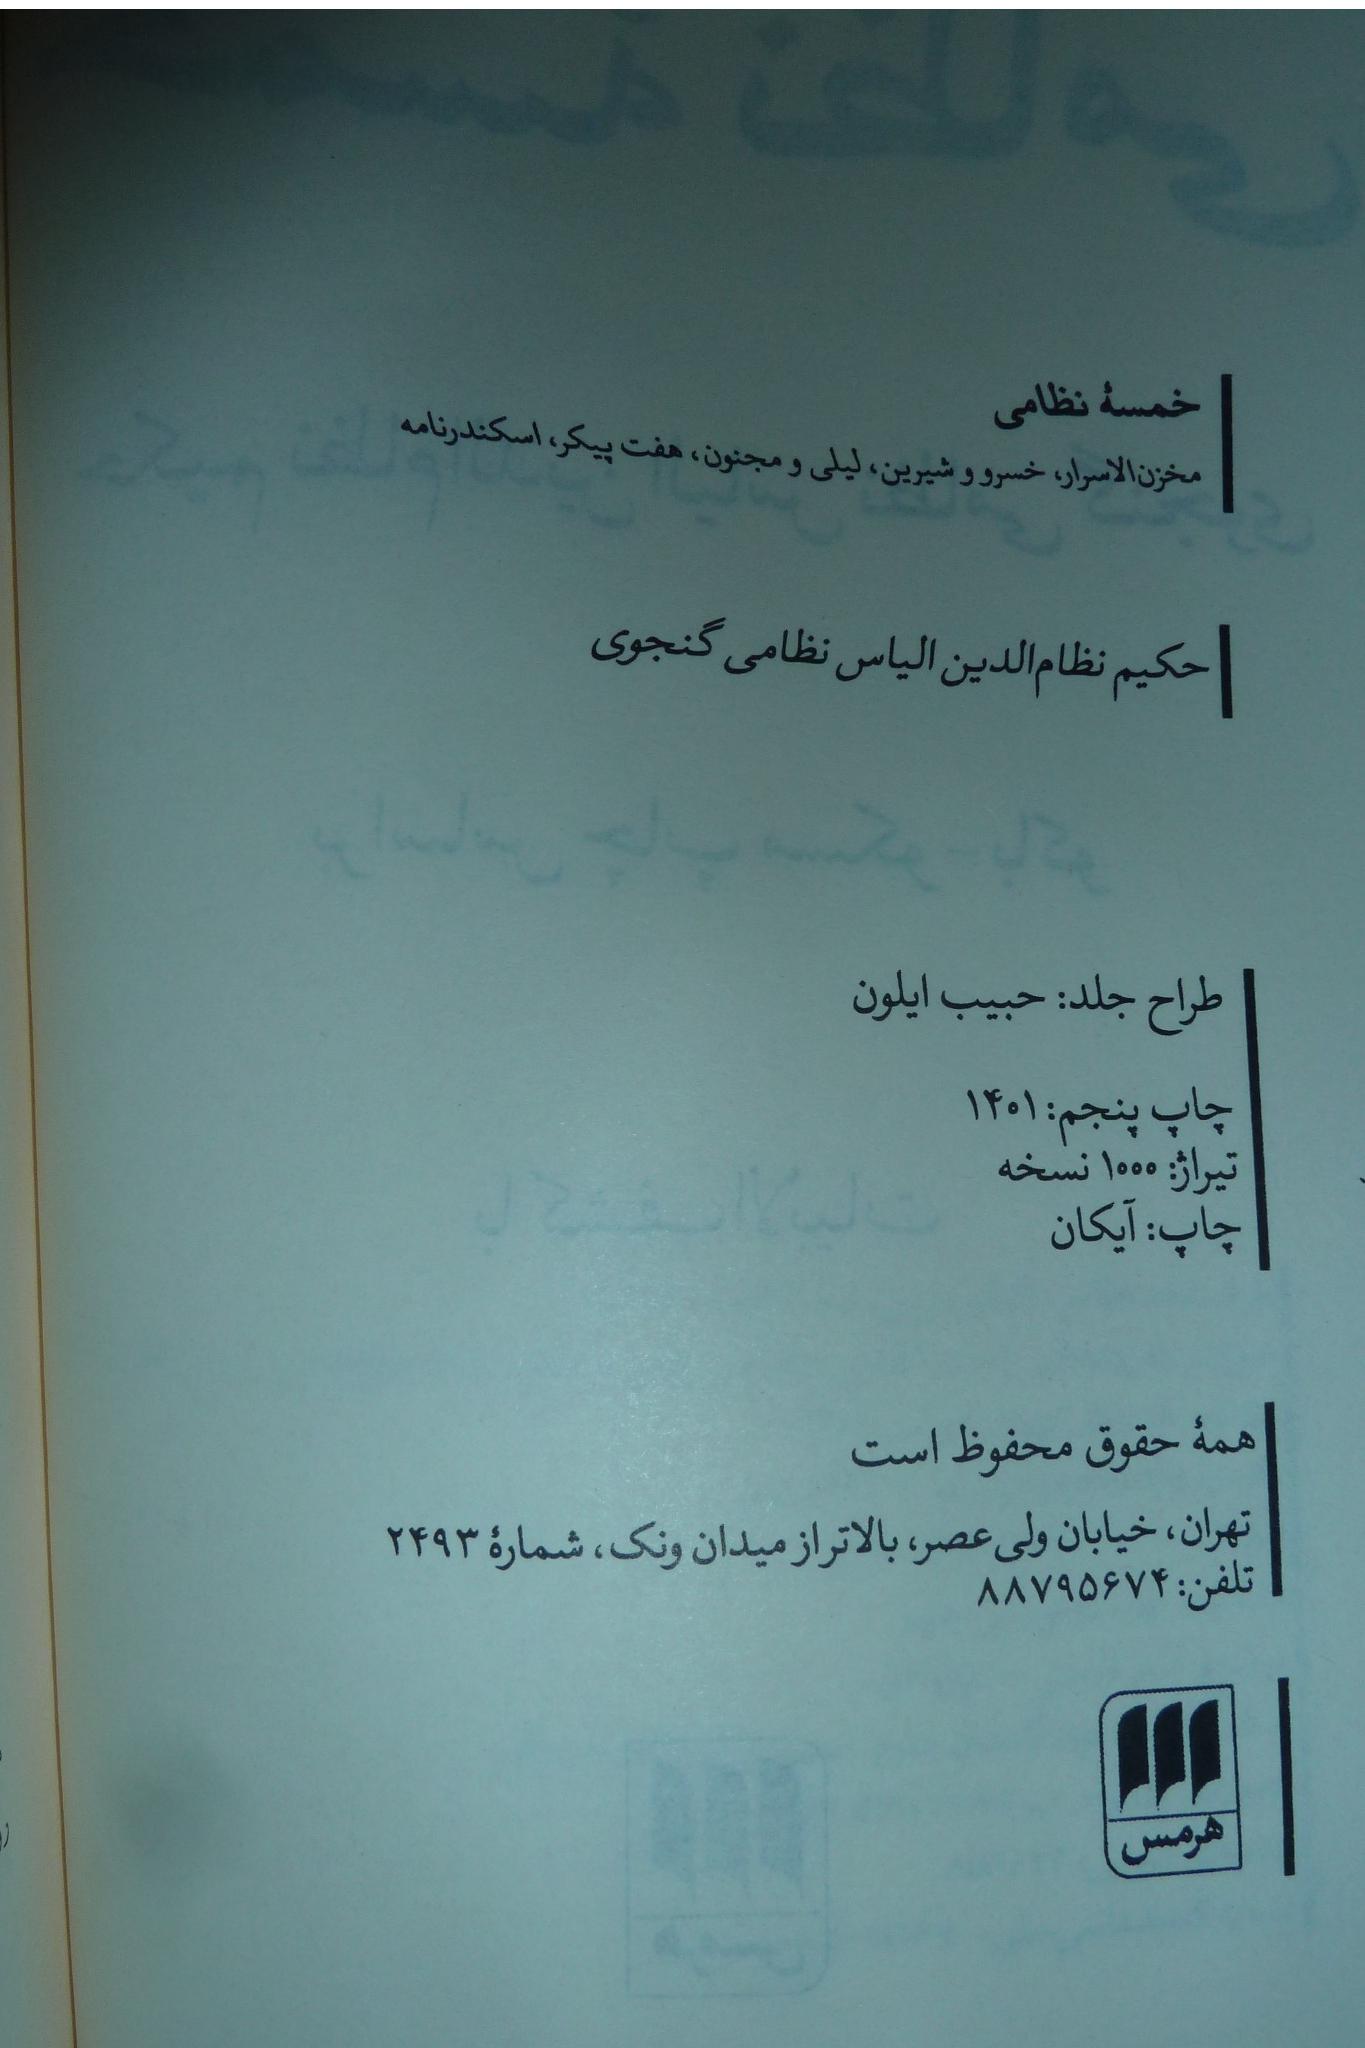 خمسهٔ نظامی
مخزن‌الاسرار، خسرو و شیرین، لیلی و مجنون، هفت پیکر، اسکندرنامه
حکیم نظام‌الدین الیاس نظامی گنجوی
طراح جلد: حبیب ایلون
چاپ پنجم: ۱۴۰۱
تیراژ: ۱۰۰۰ نسخه
چاپ: آیکان
همهٔ حقوق محفوظ است
تهران، خیابان ولی‌عصر، بالاتر از میدان ونک، شمارهٔ ۲۴۹۳
تلفن: ۸۸۷۹۵۶۷۴
هرمس